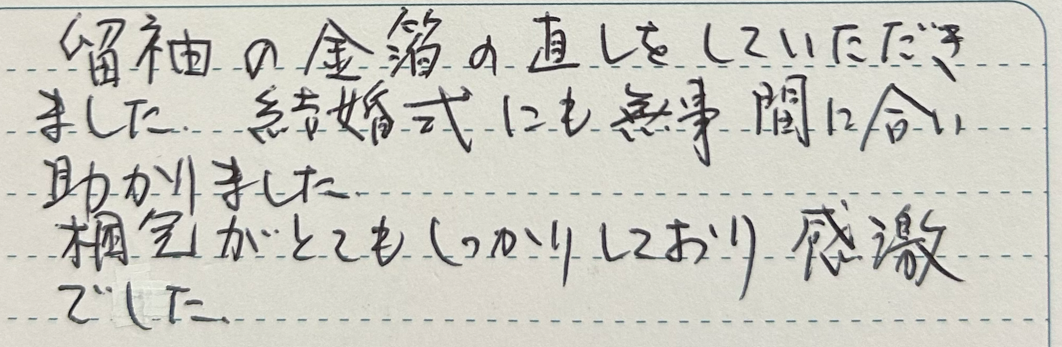 留袖の金箔の直しをしていただき
ました。結婚式にも無事間に合い
助かりました。
梱包がとてもしっかりしており感激
でした。